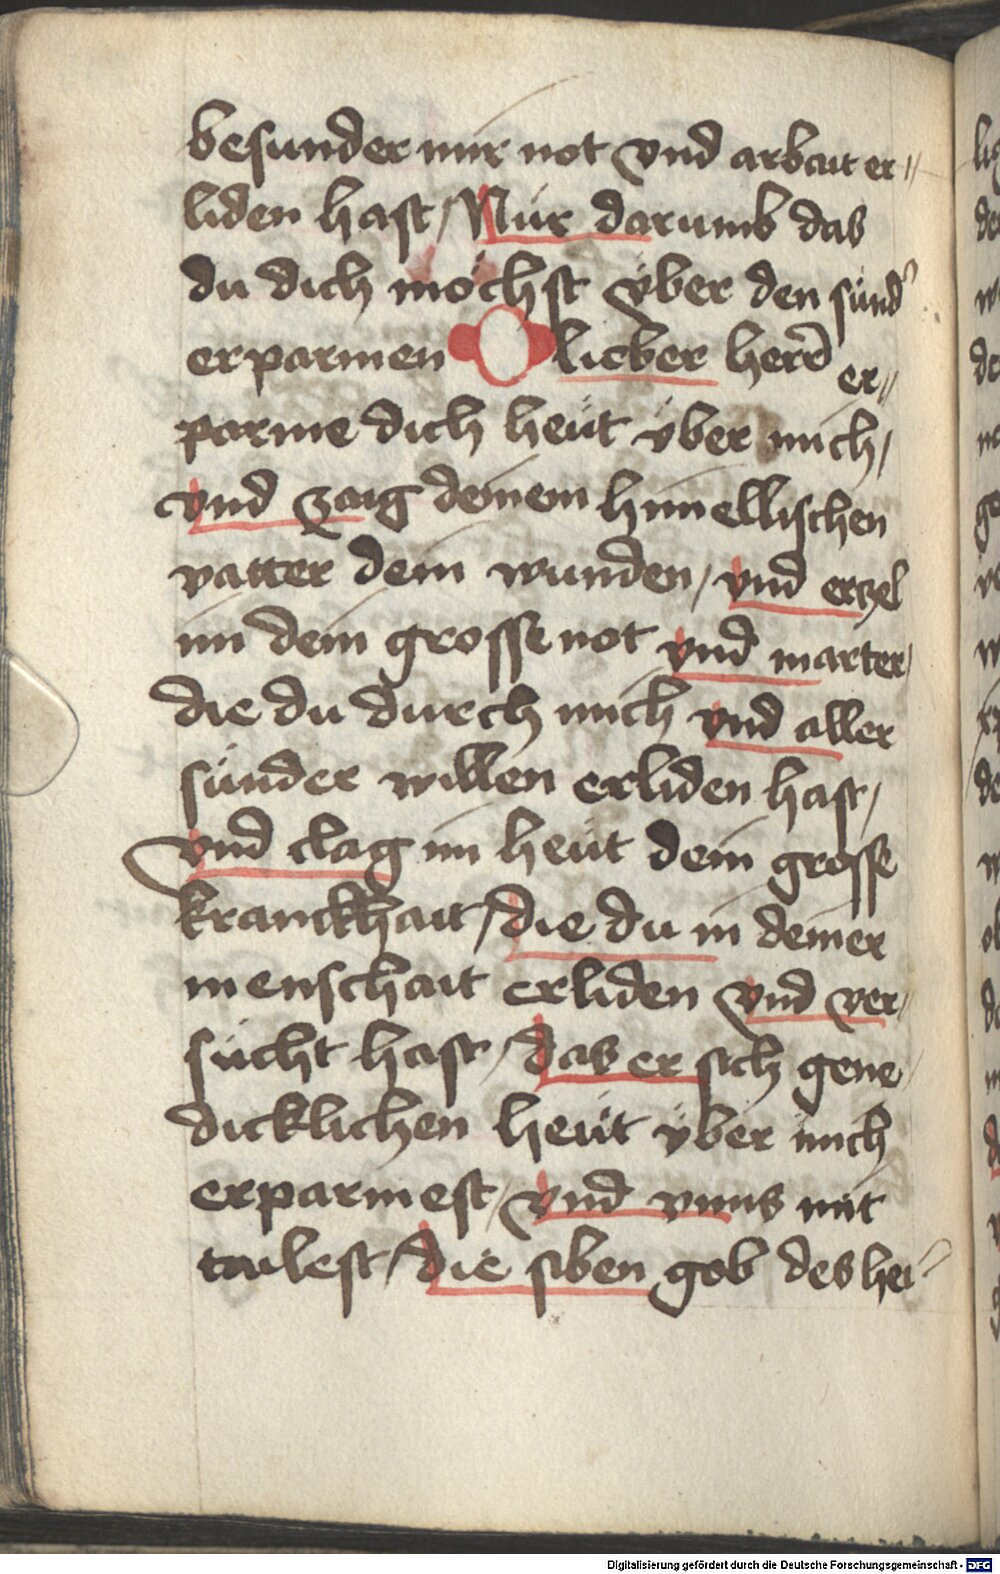 besunder mir not vnd arbait er//
liden hast / Nür darumb das
du dich möchst über den sünd'
erparmen O lieber herr er//
parme dich heüt über mich /
vnd zaig deinem himellischen
vatter dein wunden / vnd erzel
im dein grosse not vnd marter /
die du durch mich vnd aller
sünder willen erliden hast /
vnd clag im heüt dein grosse
kranckhait / die du in deiner
menschait erliden vnd ver/
sücht hast / das er sich gene/
dicklichen heüt über mich
erparmest / vnd vnns mit
tailest / die siben gob des hei/
Digitalisierung gefördert durch die Deutsche Forschungsgemeinschaft - DFG